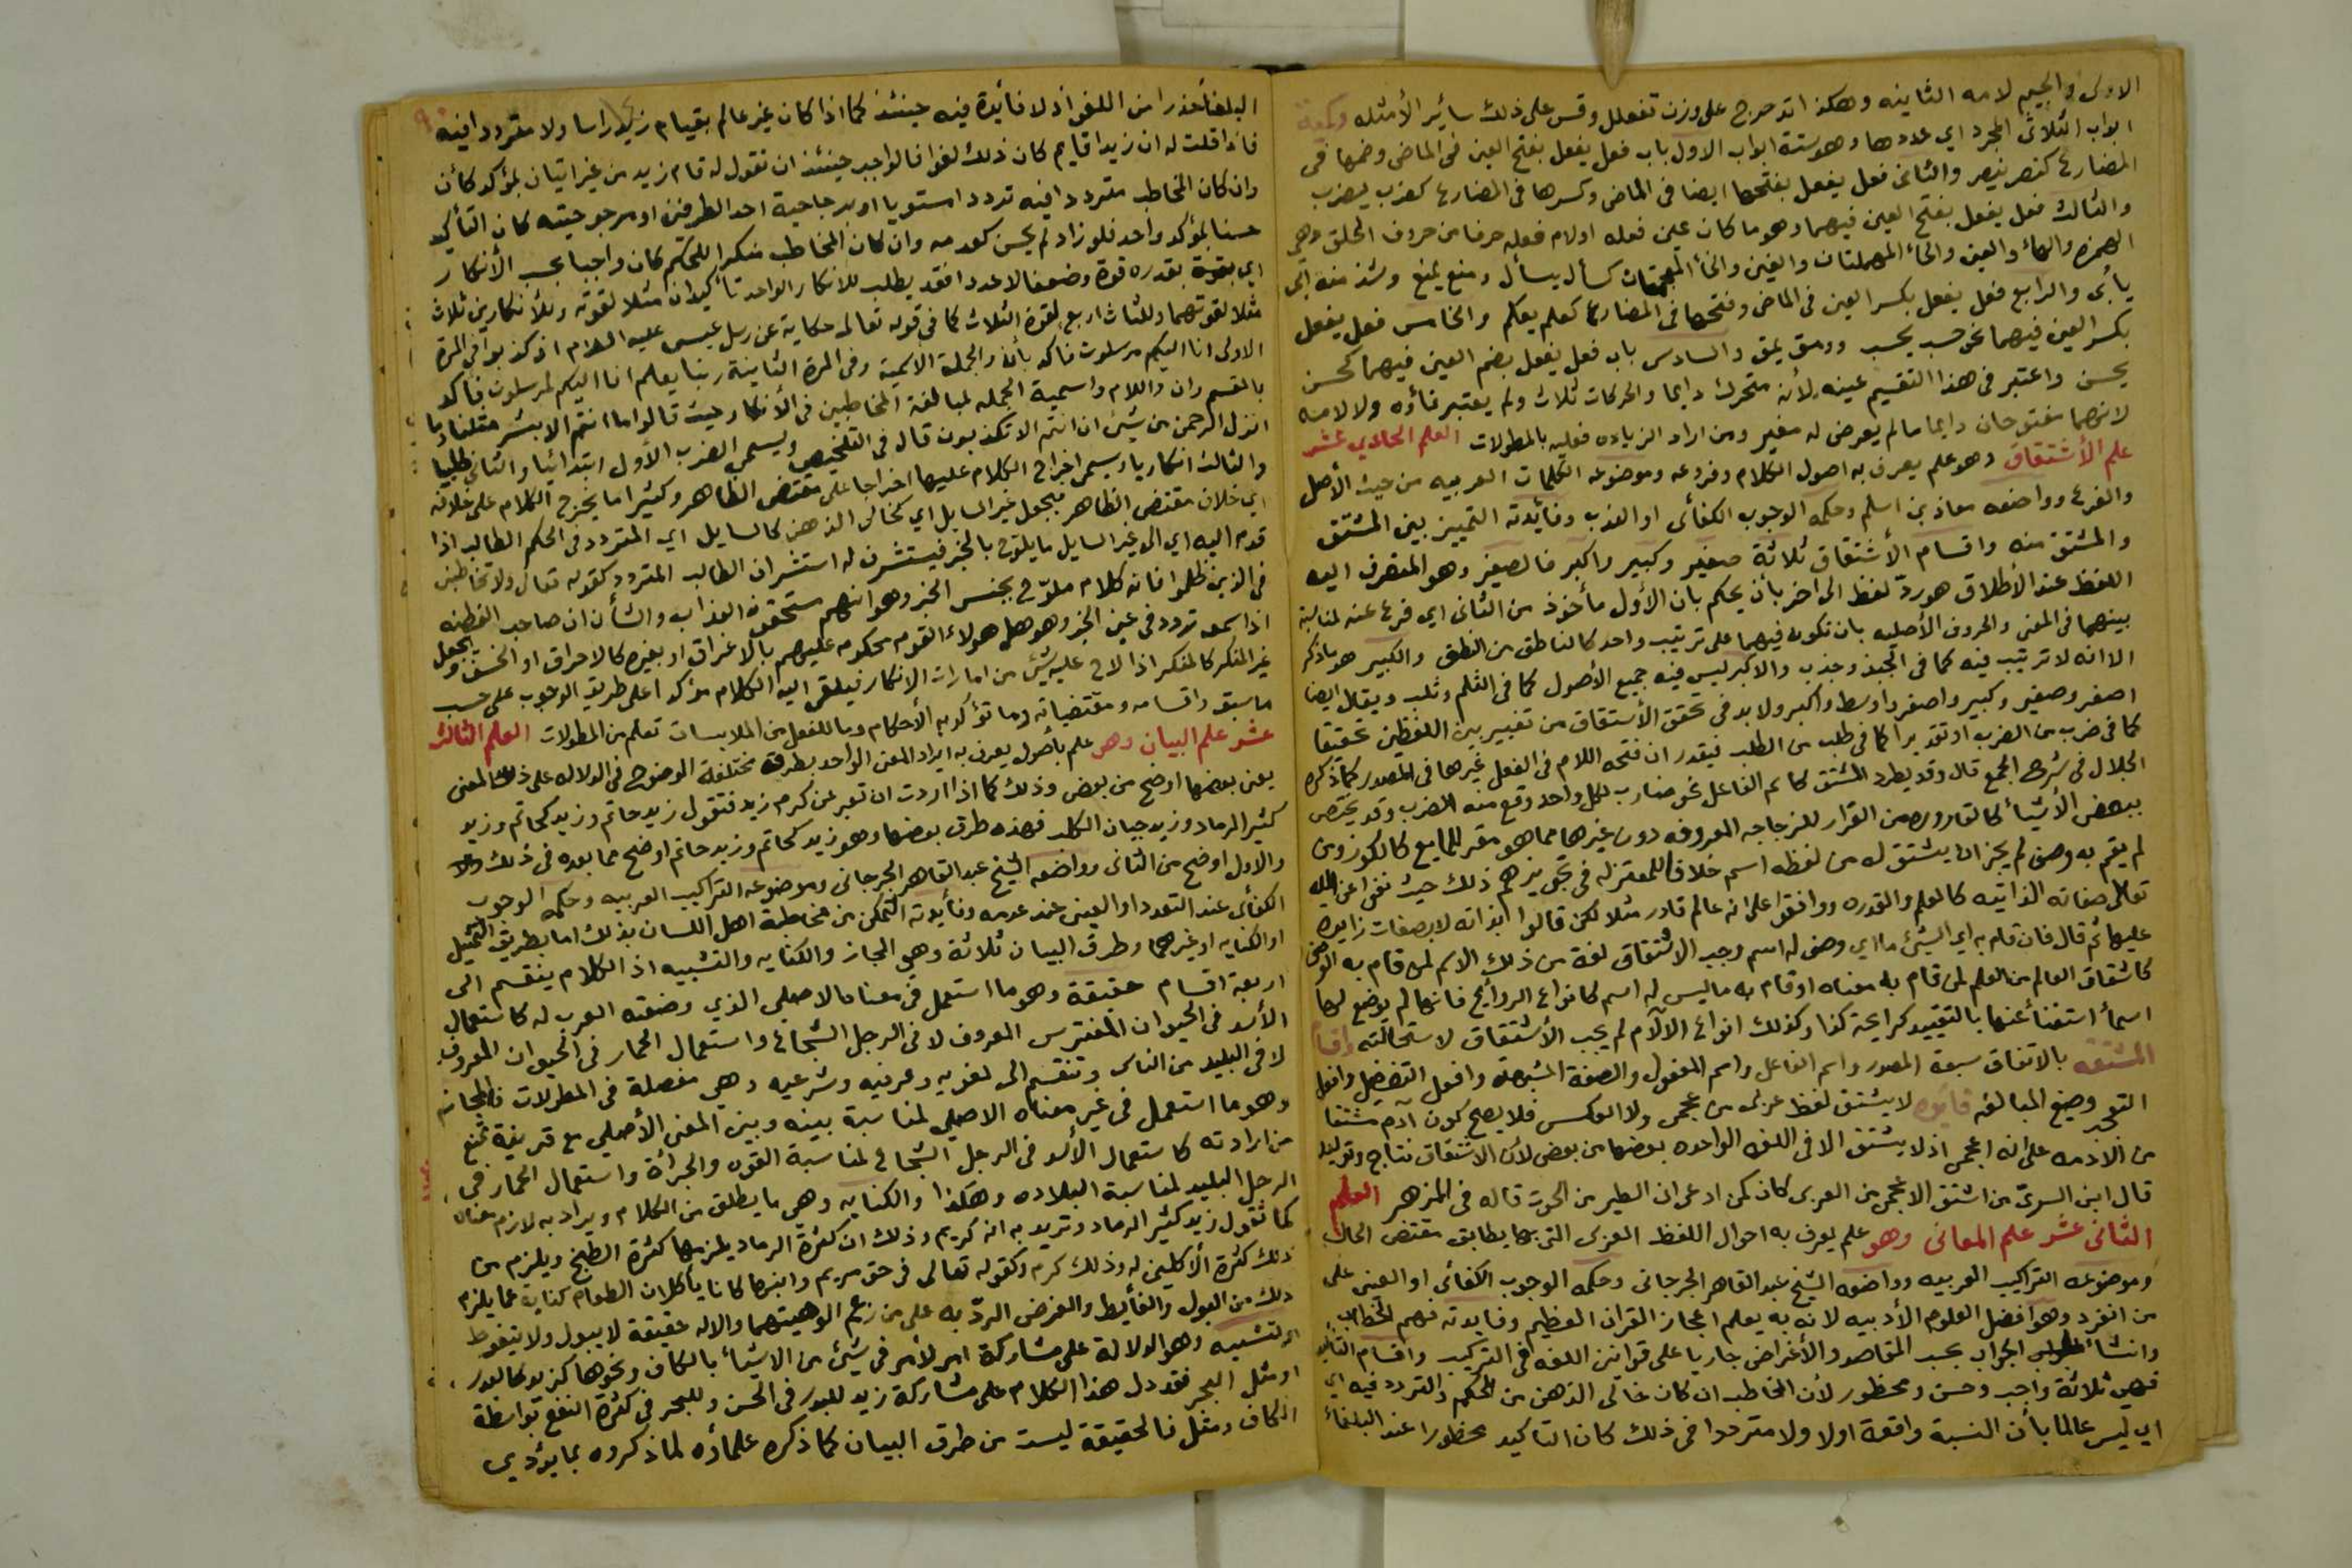 الاولى والجيم لامه الثانيه وهكذا تدحرج على وزن تفعلل وقس على ذلك سائر الأمثله
ابواب الثلاثى المجرد اي عددها وهو ستة ابواب الاول باب فعل يفعل بفتح العين فى الماضى وضمها فى
المضارع كنصر ينصر والثانى فعل يفعل بفتحها ايضا فى الماضى وكسرها فى المضارع كضرب يضرب
والثالث فعل يفعل بفتح العين فيهما وهو ما كان عين فعله او لام فعله حرفا من حروف الحلق وهى
الهمزه والهاء والعين والحاء المهملتان والغين والخاء المعجمتان كسأل يسأل ومنع يمنع وشذ منه ابى
يأبى والرابع فعل يفعل بكسر العين فى الماضى وفتحها فى المضارع كعلم يعلم والخامس فعل يفعل
بكسر العين فيهما نحو حسب يحسب وومق يمق والسادس باب فعل يفعل بضم العين فيهما كحسن
يحسن واعتبر فى هذا التقسيم عينه لأنه متحرك دايما والحركات ثلاث ولم يعتبر فاؤه ولا لامه
لانهما مفتوحان دايما ما لم يعرض له مغير ومن اراد الزياده فعليه بالمطولات العلم الحادي عشر
علم الأشتقاق وهو علم يعرف به اصول الكلام وفروعه وموضوعه الكلمات العربيه من حيث الأصل
والفرع وواضعه معاذ بن اسلم وحكمه الوجوب الكفائى او الندب وفائدته التمييز بين المشتق
والمشتق منه واقسام الأشتقاق ثلاثة صغير وكبير واكبر فالصغير وهو المتصرف اليه
اللفظ عند الاطلاق هو ردّ لفظ الى اخر بأن يحكم بان الأول مأخوذ من الثانى اي فرع عنه لمناسبة
بينهما فى المعنى والحروف الأصليه بان تكون فيهما على ترتيب واحد كالناطق من النطق والكبير هو ما ذكر
الا انه لا ترتيب فيه كما فى الجبذ وجذب والاكبر ليس فيه جميع الأصول كما فى الثلم وثلب ويقال ايضا
اصغر وصغير وكبير واصغر واوسط واكبر ولا بد فى تحقق الأشتقاق من تغيير بين اللفظين تحقيقا
كما فى ضرب من الضرب او تقديرا كما فى طلب من الطلب فيقدر ان فتحه اللام فى الفعل غيرها فى المصدر كما ذكره
الجلال فى شرح الجمع قال وقد يطرد المشتق كاسم الفاعل نحو ضارب لكل واحد وقع منه الضرب وقد يختص
ببعض الأشياء كالقاروره من القرار للزجاجه المعروفه دون غيرها مما هو مقر للمايع كالكوز ومن
لم يقم به وصف لم يجز ان يشتق له من لفظه اسم خلافا للمعتزله فى تجويزهم ذلك حيث نفوا عن الله
تعالى صفاته الذاتيه كالعلم والقدره ووافقوا على انه عالم قادر مثلا لكن قالوا بذاته لا بصفات زايده
عليها ثم قال فان قام به اي الشيئ ما اي وصف له اسم وجب الاشتقاق لغة من ذلك الاسم لمن قام به الوصف
كاشتقاق العالم من العلم لمن قام به معناه او قام به ما ليس له اسم كانواع الروايح فانها لم يوضع لها
اسماء استغناء عنها بالتقييد كرايحة كذا وكذلك انواع الالآم لم يجب الأشتقاق لاستحالته
المشتقه بالاتفاق سبعة المصدر واسم الفاعل واسم المفعول والصفة المشبهة وافعل التفضيل وافعل
التعجب وصيغ المبالغه فائده لا يشتق لفظ عربى من عجمى ولا العكس فلا يصح كون آدم مشتقا
من الادمه على انه اعجمى اذ لا يشتق الا فى اللغه الواحده بعضها من بعض لأن الاشتقاق نتاج وتوليد
قال ابن السريّ من اشتق الاعجمى من العربى كان كمن ادعى ان الطير من الحوت قاله فى المزهر العلم
الثانى عشر علم المعانى وهو علم يعرف به احوال اللفظ العربى التى بها يطابق مقتضى الحال
وموضوعه التراكيب العربيه وواضعه الشيخ عبد القاهر الجرجانى وحكمه الوجوب الكفائى او العينى على
من انفرد وهو افضل العلوم الأدبيه لانه به يعلم اعجاز القران العظيم وفايدته فهم الخطاب
وانشاء الجواب بحسب المقاصد والأغراض جاريا على قوانين اللغه فى التركيب واقسام التأكيد
فهى ثلاثة واجب وحسن ومحظور لأن المخاطب ان كان خالى الذهن من الحكم والتردد فيه اي
اي ليس عالما بأن النسبة واقعة اولا ولا مترددا فى ذلك كان التاكيد محظورا عند البلغاء
البلغاء حذرا من اللغو اذ لا فائدة فيه حينئذ كما اذا كان غير عالم بقيام زيد راسا ولا مترددا فيه
فاذا قلت له ان زيدا قايم كان ذلك لغوا فالواجب حينئذ ان تقول له قام زيد من غير اتيان بمؤكد كأن
وان كان المخاطب مترددا فيه تردد استويا او برجاحية احد الطرفين او مرجوحيته كان التأكيد
حسنا بمؤكد واحد فلو زاد لم يحسن كعدمه وان كان المخاطب منكرا للحكم كان واجبا بحسب الأنكار
اي بقوة بقدره قوة وضعفا لا عددا فقد يطلب للانكار الواحد تأكيدان مثلا لقوته وللأنكارين ثلاث
مثلا لقوتهما وللثلاث اربع لقوة الثلاث كما فى قوله تعالى حكاية عن رسل عيسى عليه السلام اذ كذبوا فى المرة
الاولى انا اليكم مرسلون فاكد بأن والجملة الاسمية وفى المرة الثانية ربنا يعلم انا اليكم لمرسلون فأكد
بالقسم وان واللام واسمية الجمله لمبالغة المخاطبين فى الأنكار حيث قالوا ما انتم الا بشر مثلنا وما
انزل الرحمن من شيئ ان انتم الا تكذبون قال فى التلخيص ويسمى الضرب الأول ابتدائيا والثانى طلبيا
والثالث انكاريا ويسمى اخراج الكلام عليها اخراجا على مقتضى الظاهر وكثيرا ما يخرج الكلام على خلافه
اي خلاف مقتضى الظاهر فيجعل غير السايل اي كخالى الذهن كالسايل اي المتردد فى الحكم الطالب اذا
قدم اليه اي الى غير السايل ما يلوّح بالخبر فيستشرف له استشراف الطالب المتردد كقوله تعالى ولا تخاطبنى
فى الذين ظلموا فانه كلام ملوّح بجنس الخبر وهو انهم مستحقون العذاب والشأن ان صاحب الفطنه
اذا سمعه تردد فى عين الخبر وهو هل هولاء القوم محكوم عليهم بالاغراق او بغيره كالاحراق او الخسف ويجعل
غير المنكر كالمنكر اذا لاح عليه شيئ من امارات الانكار فيلقى اليه الكلام مؤكدا على طريق الوجوب على حسب
ما سبق واقسامه ومقتضياته وما تؤكد به الأحكام وما للفعل من الملابسات تعلم من المطولات العلم الثالث
عشر علم البيان وهو علم بأصول يعرف به ايراد المعنى الواحد بطرق مختلفة الوضوح فى الدلاله على ذلك المعنى
يعنى بعضها اوضح من بعض وذلك كما اذا اردت ان تعبر عن كرم زيد فتقول زيد حاتم وزيد كحاتم وزيد
كثير الرماد وزيد جبان الكلب فهذه طرق بعضها وهو زيد كحاتم وزيد حاتم اوضح مما بعده فى ذلك
والاول اوضح من الثانى وواضعه الشيخ عبد القاهر الجرجانى وموضوعه التراكيب العربيه وحكمه الوجوب
الكفائى عند التعدد او العينى عند عدمه وفأيدته التمكن من مخاطبة اهل اللسان بذلك اما بطريق التمثيل
او الكنايه او غيرهما وطرق البيان ثلاثة وهى المجاز والكنايه والتشبيه اذ الكلام ينقسم الى
اربعة اقسام حقيقة وهو ما استعمل فى معناه الاصلى الذي وضعته العرب له كاستعمال
الأسد فى الحيوان المفترس المعروف لا فى الرجل الشجاع واستعمال الحمار فى الحيوان المعروف
لا فى البليد من الناس وتنقسم الى لغويه وعرفيه وشرعيه وهى مفصلة فى المطولات والمجاز
وهو ما استعمل فى غير معناه الاصلى لمناسبة بينه وبين المعنى الأصلى مع قرينة تمنع
من ارادته كاستعمال الأسد فى الرجل الشجاع لمناسبة القوه والجرأة واستعمال الحمار فى
الرجل البليد لمناسبة البلاده وهكذا والكنايه وهى ما يطلق من الكلام ويراد به لازم معناه
كما تقول زيد كثير الرماد وتريد به انه كريم وذلك ان كثرة الرماد يلزمها كثرة الطبخ ويلزم من
ذلك كثرة الأكلين له وذلك كرم وكقوله تعالى فى حق مريم وابنها كانا يأكلان الطعام كناية عما يلزم
ذلك من البول والغائط والغرض الردّ به على من زعم الوهيتهما والاله حقيقة لا يبول ولا يتغوط
والتشبيه وهو الدلالة على مشاركة امر لأمر فى شيئ من الاشياء بالكاف ونحوها كزيد كالبدر
او مثل البحر فقد دل هذا الكلام على مشاركة زيد للبدر فى الحسن وللبحر فى كثرة النفع بواسطة
الكاف ومثل فالحقيقة ليست من طرق البيان كما ذكره علماؤه لما ذكروه بما يؤدي